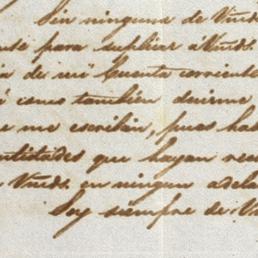 Sin ninguna de Vmds.
para suplicar á Vmds.
de mi Cuenta corriente
como también decirme
me escriban, pues hab
ntidades que hayan rec
Vmds. en ningun adela
Soy siempre de V